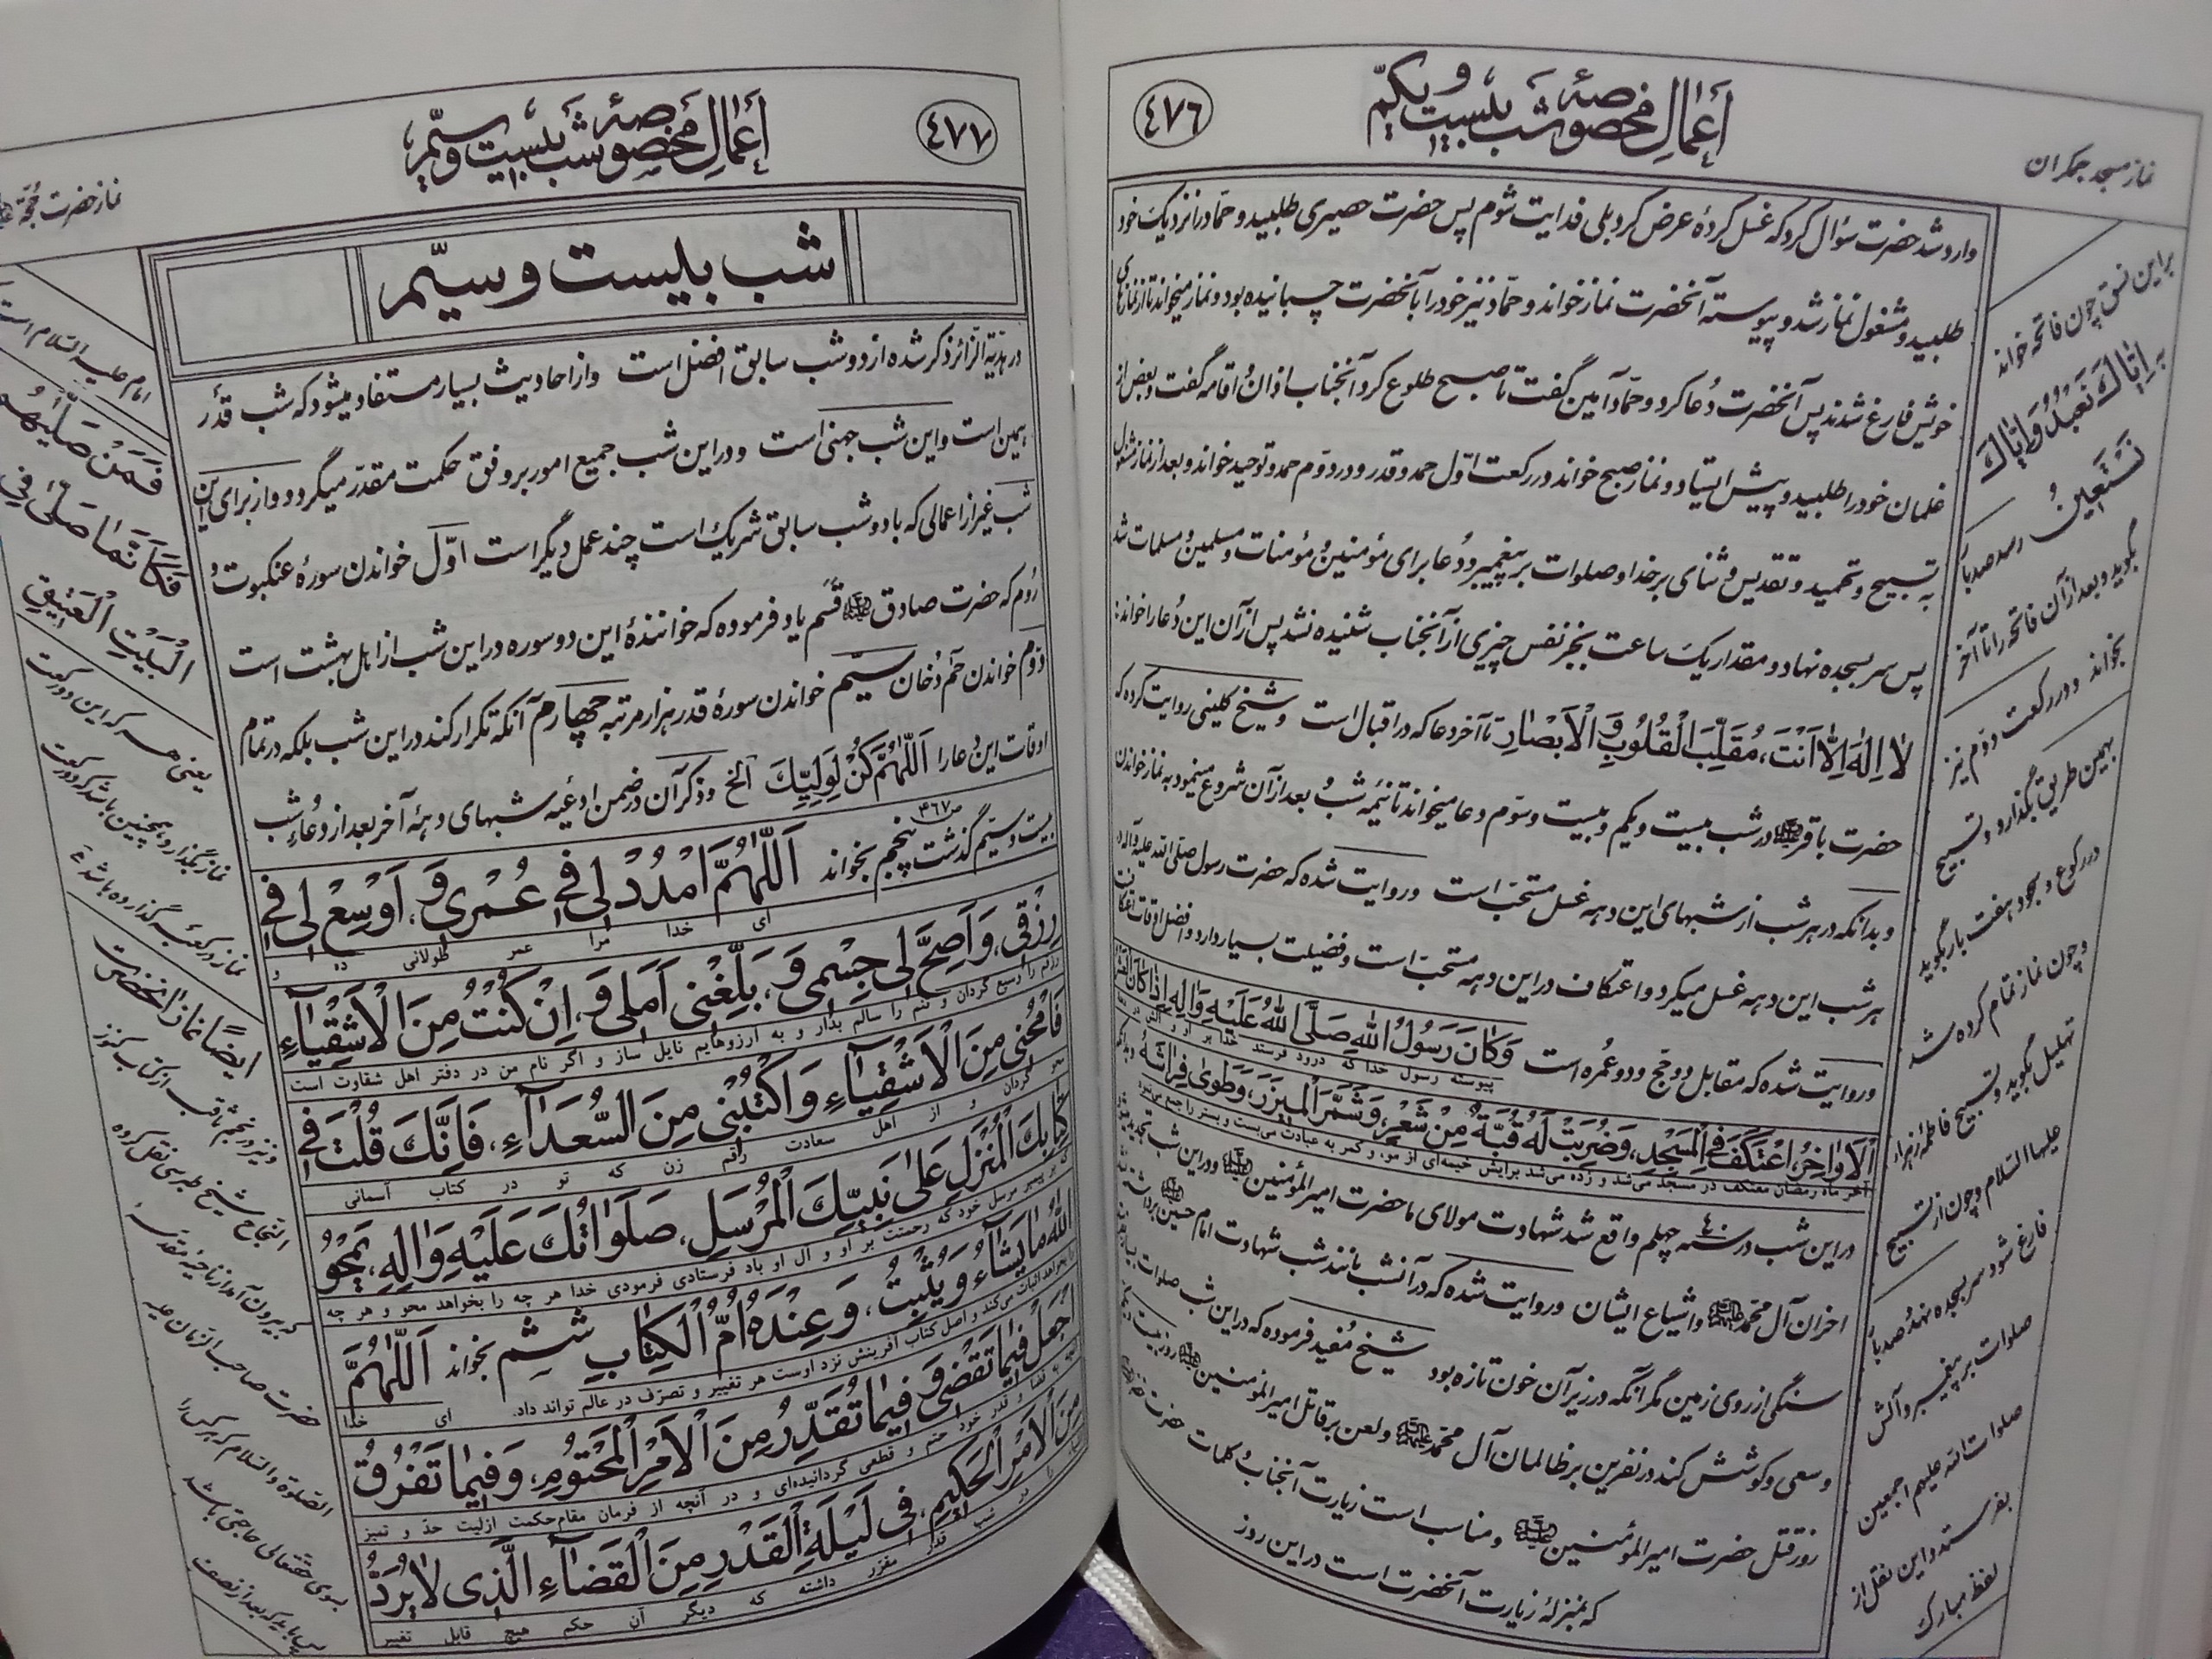 نماز مسجد جمکران
٤٧٦
أعمال مخصوصهٔ شب بیست و یکم
وارد شد حضرت سؤال کرد که غسل کردهٔ عرض کرد بلی فدایت شوم پس حضرت حصیری طلبید و حماد را نزدیک خود
طلبید و مشغول نماز شد و پیوسته آنحضرت نماز خواند و حمّاد نیز خود را بآنحضرت چسبانیده بود و نماز میخواند تا از نمازهای
خویش فارغ شدند پس آنحضرت دُعا کرد و حمّاد آمین گفت تا صبح طلوع کرد آنجناب اذان و اقامه گفت و بعض از
غلمان خود را طلبید و پیش ایستاد و نماز صبح خواند در رکعت اوّل حمد و قدر و در دوّم حمد و توحید خواند و بعد از نماز مشغول
به تسبیح و تحمید و تقدیس و ثنای بر خدا و صلوات بر پیغمبر و دُعا برای مؤمنین و مؤمنات و مسلمین و مسلمات شد
پس سر بسجده نهاد و مقدار یک ساعت بجز نفس چیزی از آنجناب شنیده نشد پس از آن این دُعا را خواند:
لٰا اِلٰهَ اِلّٰا اَنْتَ، مُقَلِّبَ الْقُلُوبِ وَ الْاَبْصٰارِ تا آخر دعا که در اقبال است و شیخ کلینی روایت کرده که
حضرت باقر در شب بیست و یکم و بیست و سوّم دعا میخواند تا نیمه شب و بعد از آن شروع مینمود به نماز خواندن
و بدانکه در هر شب از شبهای این دهه غسل مستحبّ است و روایت شده که حضرت رسول صلی الله علیه و آله در
هر شب این دهه غسل میکرد و اعتکاف در این دهه مستحبّ است و فضیلت بسیار دارد و افضل اوقات اعتکاف
و روایت شده که مقابل دو حج و دو عُمره است وَ کٰانَ رَسُولُ اللهِ صَلَّی اللهُ عَلَیْهِ وَاٰلِهِ اِذٰا کٰانَ الْعَشْرُ
پیوسته رسول خدا که درود فرستد خدا بر او و آلش در دهه
الْاَوٰاخِرُ، اعْتَکَفَ فِی الْمَسْجِدِ، وَ ضُرِبَتْ لَهُ قُبَّةٌ مِنْ شَعْرٍ، وَ شَمَّرَ الْمِیزَرَ، وَ طَوٰی فِرٰاشَهُ
آخر ماه رمضان معتکف در مسجد می‌شد و زده می‌شد برایش خیمه‌ای از مو، و کمر به عبادت می‌بست و بستر را جمع می‌نمود
در این شب در سنه ٤٠ چهلم واقع شد شهادت مولای ما حضرت امیرالمؤمنین و در این شب تجدید میشود
احزان آل محمّد و اشیاع ایشان و روایت شده که در آنشب مانند شب شهادت امام حسین برداشته نشد
سنگی از روی زمین مگر آنکه در زیر آن خون تازه بود شیخ مُفید فرموده که در این شب صلوات بسیار
و سعی و کوشش کند در نفرین بر ظالمان آل محمّد و لعن بر قاتل امیرالمؤمنین روز بیست و یکم
روز قتل حضرت امیرالمؤمنین و مناسب است زیارت آنجناب و کلمات حضرت خضر
که بمنزلهٔ زیارت آنحضرت است در این روز
براین نسق چون فاتحه خواند
به اِیّٰاکَ نَعْبُدُ وَ اِیّٰاکَ
نَسْتَعِینُ رسد صدبار
بگوید و بعد از آن فاتحه را تا آخر
بخواند و در رکعت دوّم نیز
بهمین طریق بگذارد و تسبیح
در رکوع و سجود هفت بار بگوید
و چون نماز تمام کرده شد
تهلیل بگوید و تسبیح فاطمهٔ زهراء
علیها السّلام و چون از تسبیح
فارغ شود سر بسجده نهد و صدبار
صلوات بر پیغمبر و آلش
صلوات الله علیهم اجمعین
بفرستد و این نقل از
لفظ مبارک
أعمال مخصوصهٔ شب بیست و سیّم
٤٧٧
نماز حضرت حجّة
شب بیست و سیّم
در هدیّة الزائر ذکر شده از دو شب سابق افضل است و از احادیث بسیار مستفاد میشود که شب قدر
همین است و این شب جهنی است و در این شب جمیع امور بر وفق حکمت مقدّر میگردد و از برای این
شب غیر از اعمالی که با دو شب سابق شریک است چند عمل دیگر است اوّل خواندن سورهٔ عنکبوت و
رُوم که حضرت صادق قَسَم یاد فرموده که خوانندهٔ این دو سوره در این شب از اهل بهشت است
دوّم خواندن حٰم دُخان سیّم خواندن سورهٔ قدر هزار مرتبه چهارم آنکه تکرار کند در این شب بلکه در تمام
اوقات این دعا را اَللّٰهُمَّ کُنْ لِوَلِیِّکَ الخ و ذکر آن در ضمن ادعیه شبهای دههٔ آخر بعد از دُعاءِ شب
بیست و سیّم گذشت ص٤٦٧ پنجم بخواند اَللّٰهُمَّ امْدُدْ لی فی عُمْری، وَ اَوْسِعْ لی فی
ای خدا مرا عمر طولانی ده و
رِزْقی، وَ اَصِحَّ لی جِسْمی وَ بَلِّغْنی اَمَلی وَ اِنْ کُنْتُ مِنَ الْاَشْقِیٰآءِ
رزقم را وسیع گردان و تنم را سالم بدار و به آرزوهایم نایل ساز و اگر نام من در دفتر اهل شقاوت است
فَامْحُنی مِنَ الْاَشْقِیٰآءِ وَ اکْتُبْنی مِنَ السُّعَدٰآءِ، فَاِنَّکَ قُلْتَ فی
محو گردان و از اهل سعادت رقم زن که تو در کتاب آسمانی
کِتٰابِکَ الْمُنْزَلِ عَلٰی نَبِیِّکَ الْمُرْسَلِ، صَلَوٰاتُکَ عَلَیْهِ وَ اٰلِهِ، یَمْحُو
که بر پیمبر مرسل خود که رحمتت بر او و آل او باد فرستادی فرمودی خدا هر چه را بخواهد محو و هر چه
اللهُ مٰا یَشٰآءُ وَ یُثْبِتُ، وَ عِنْدَهُ اُمُّ الْکِتٰابِ شِشم بخواند اَللّٰهُمَّ
را بخواهد اثبات می‌کند و اصل کتاب آفرینش نزد اوست هر تغییر و تصرّف در عالم تواند داد. ای خدا
اجْعَلْ فیمٰا تَقْضی وَ فیمٰا تُقَدِّرُ مِنَ الْاَمْرِ الْمَحْتُومِ، وَ فیمٰا تَفْرُقُ
آنچه به قضا و قدر خود حتم و قطعی گردانیده‌ای و در آنچه از فرمان مقام حکمت ازلیت حدّ و تمیز
مِنَ الْاَمْرِ الْحَکیمِ، فی لَیْلَةِ الْقَدْرِ مِنَ الْقَضٰآءِ الَّذی لٰا یُرَدُّ
در شب قدر مقرر داشته که دیگر آن حکم هیچ قابل تغییر
امام علیه السّلام است
فَمَنْ صَلّٰیهُمٰا
فَکَاَنَّمٰا صَلّٰی فِی
الْبَیْتِ الْعَتیقِ
یعنی هر که این دو رکعت
نماز بگذارد همچنین باشد که دو رکعت
نماز در کعبه گذارده باشد
ایضاً نماز آنحضرت
و نیز در نجم ثاقب از کتاب کنوز
النّجاح شیخ طبرسی نقل کرده
که بیرون آمد از ناحیه مقدّسهٔ
حضرت صاحب الزّمان علیه
الصّلوة و السّلام که هر کس را
بسوی حقتعالی حاجتی باشد
پس باید که بعد از نصف